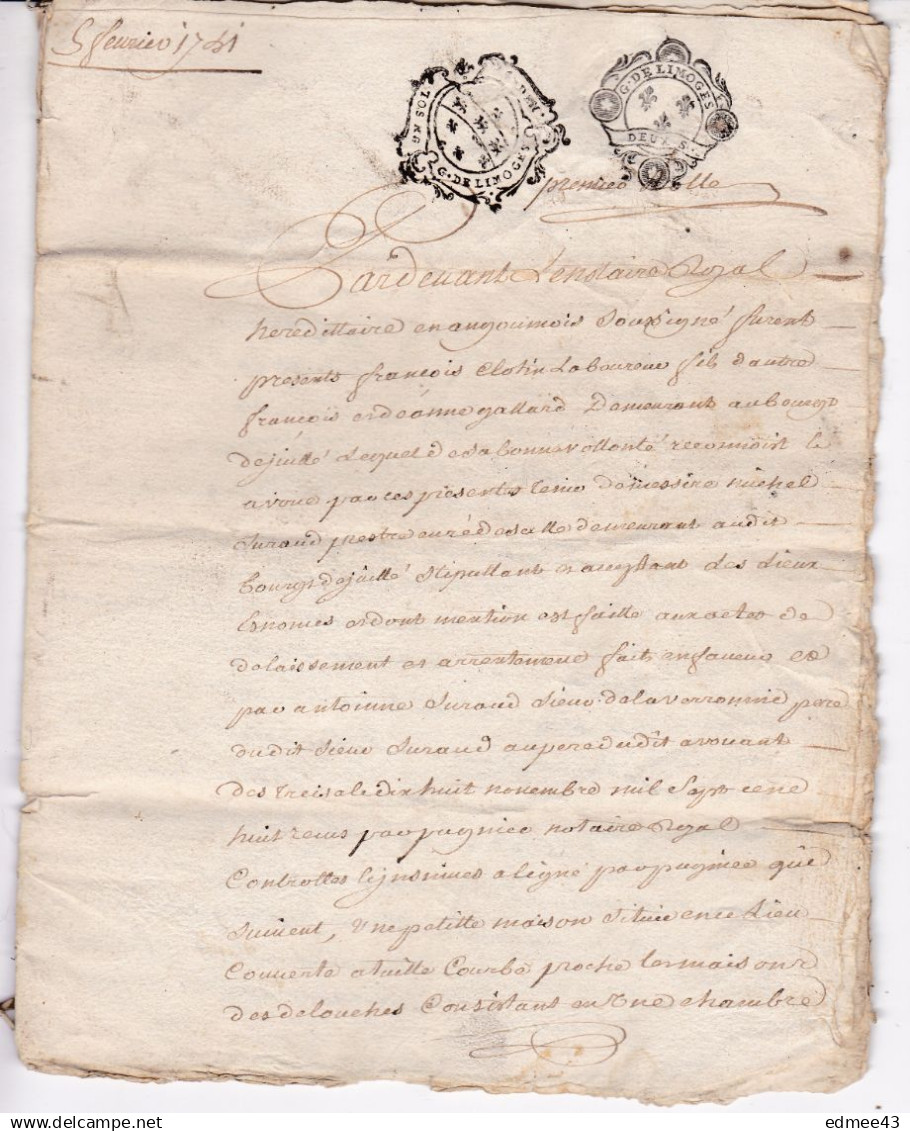 5 fevrier 1741
UN SOL
G. DE LIMOGES
G. DE LIMOGES
DEUX S.
premiere
Pardevant Lenotaire Royal
heredittaire en angoumois Soussigné furent
presents françois Clotin Laboureur fils dautre
françois et deanne gallard Demeurant au bourcg
dejuillé Lequel de sa bonne vollonté reconnoist
avoue par ces presentes tenir de messire michel
Suraud prestre curé de demeurant audit
bourg dejuillé Stipullant et acceptant des Lieux
et dont mention est faitte aux actes de
delaissement et arrentement faits en faveur
par antoinne Suraud Sieur delaverronnie pere
dudit Sieur Suraud au pere dudit avouant
des dix huit novembre mil Sept cent
huit recus par pagnier notaire Royal
Controllés a ligné par pagnier qui
Suivent, Une petitte maison Situee en ce Lieu
Couverte a tuille Courbe proche les maisons
des delouches Consistant en Une chambre
edmee43